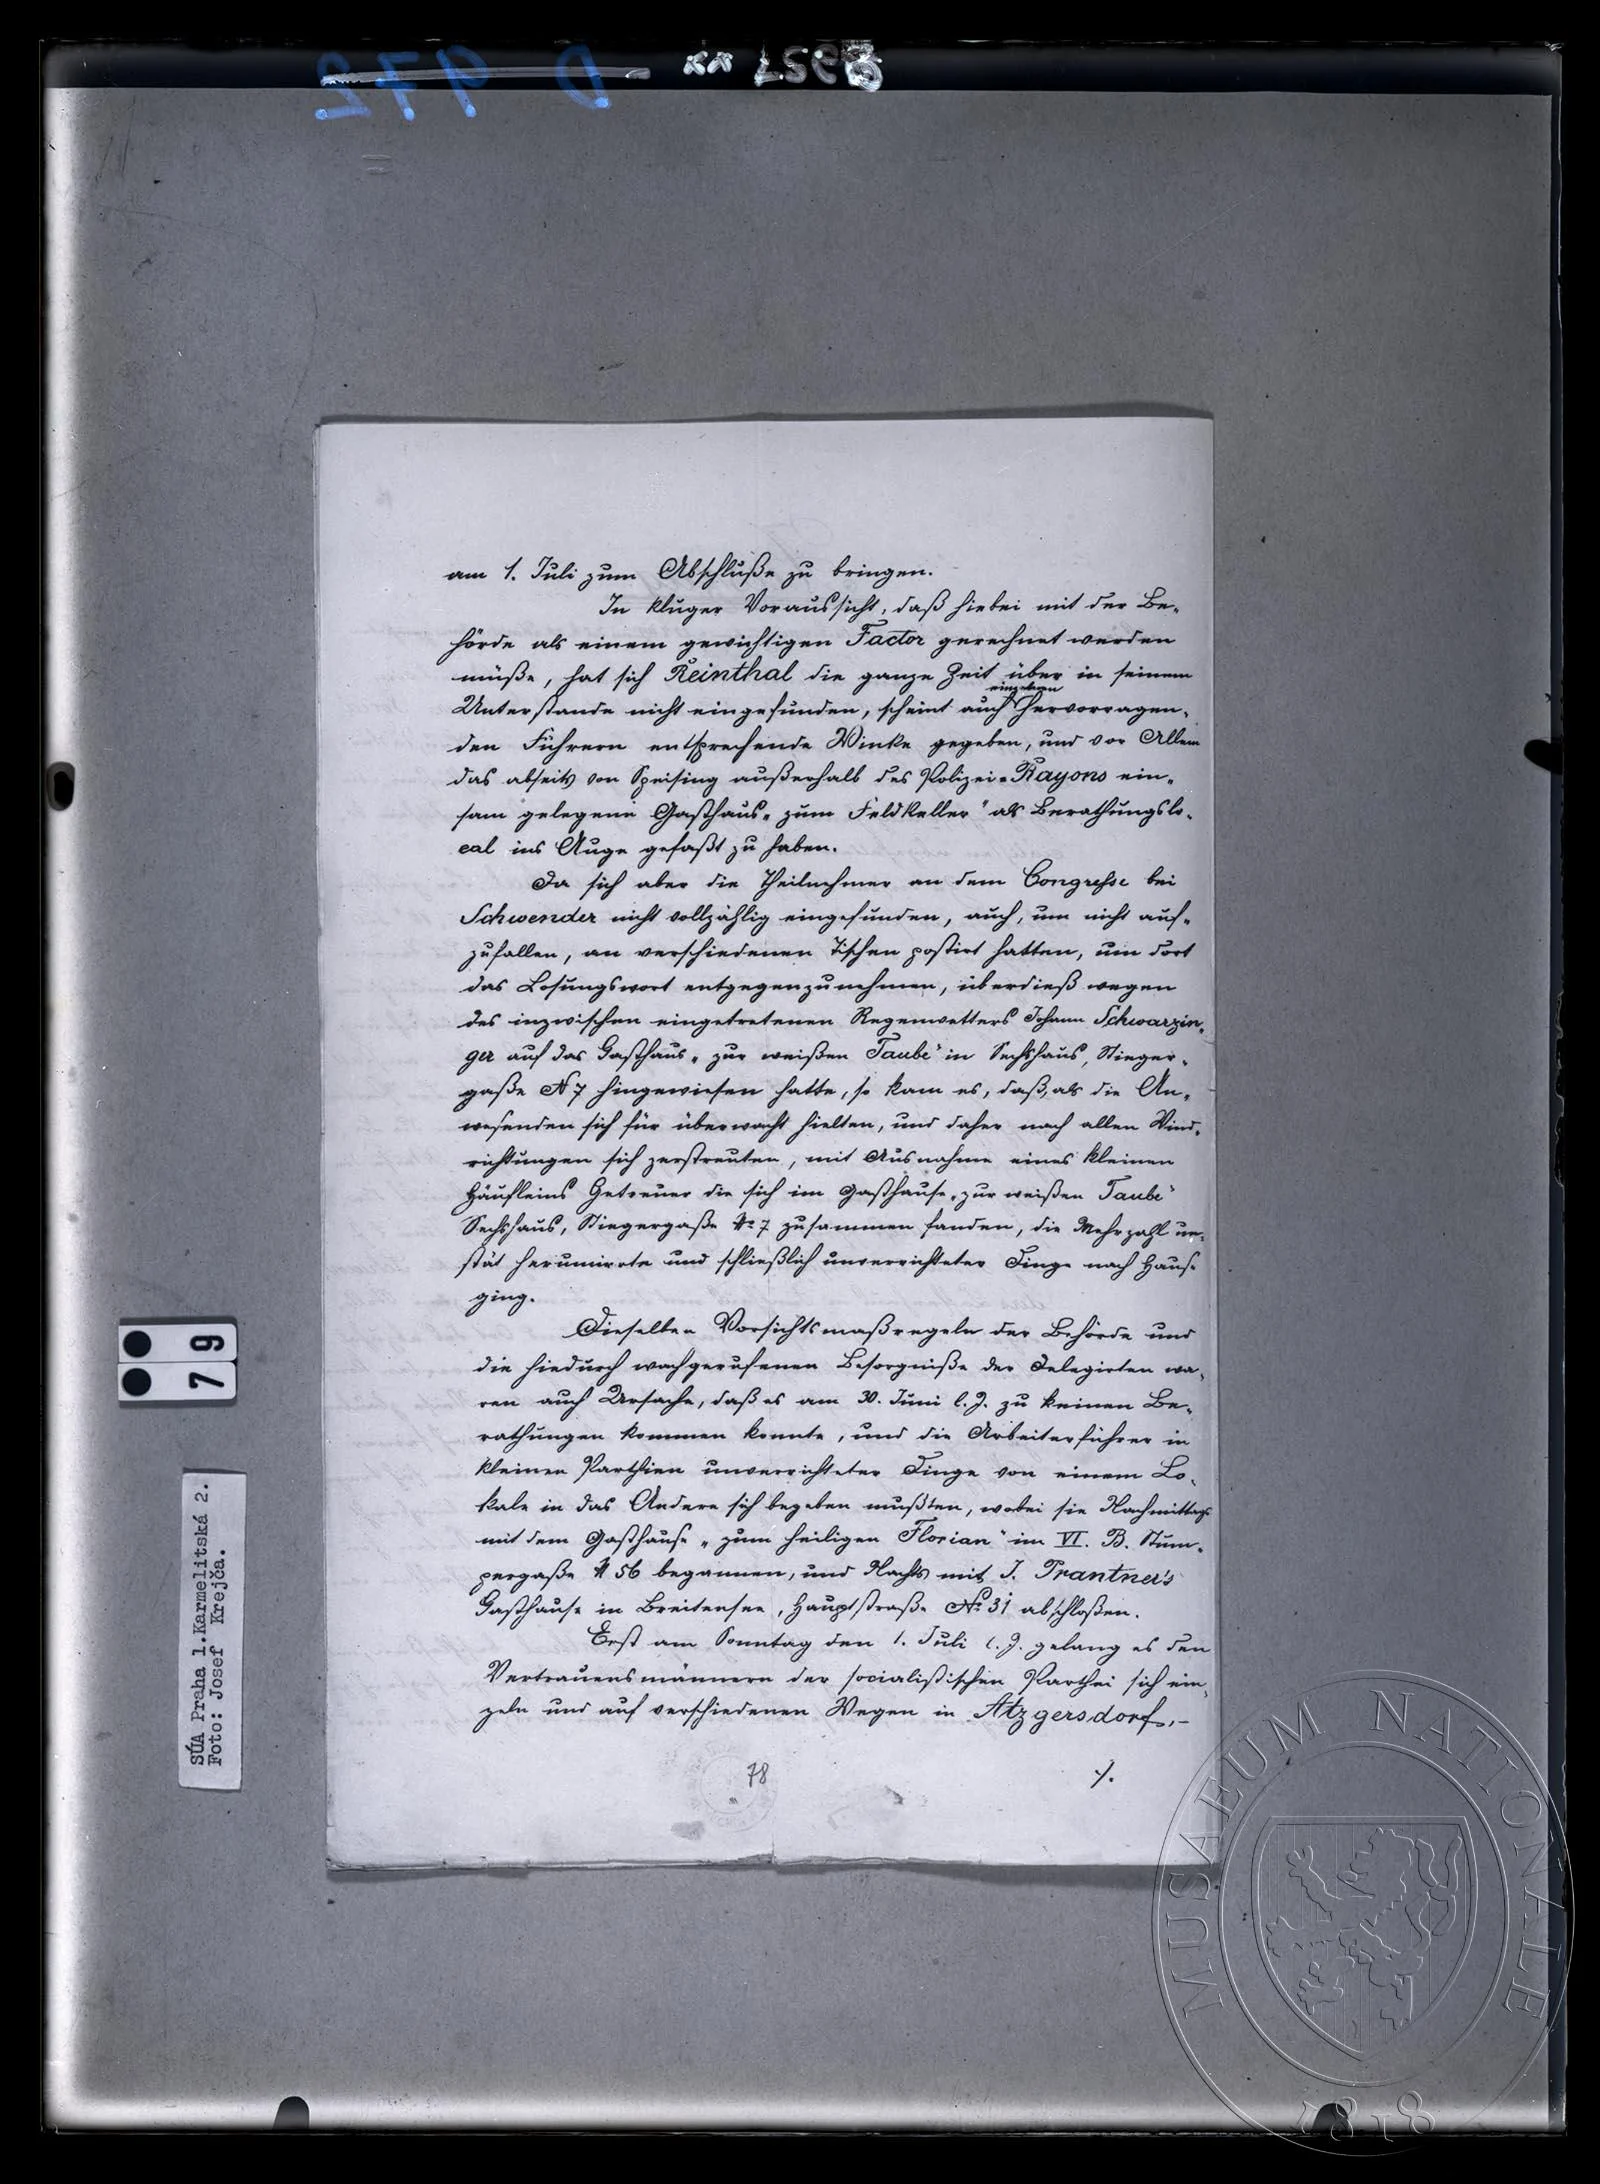 D 972
am 1. Juli zum Abschluße zu bringen.
In kluger Voraussicht, daß hiebei mit der Be-
hörde als einem gewichtigen Factor gerechnet werden
müße, hat sich Reinthal die ganze Zeit über in seinem
einzelnen
Unterstande nicht eingefunden, scheint auch hervorragen-
den Führern entsprechende Winke gegeben, und vor Allem
das abseits von Speising außerhalb des Polizei-Rayons ein-
sam gelegene Gasthaus „zum Feldkeller" als Berathungslo-
cal ins Auge gefaßt zu haben.
Da sich aber die Theilnehmer an dem Congresse bei
Schwender nicht vollzählig eingefunden, auch, um nicht auf-
zufallen, an verschiedenen Tischen postirt hatten, um dort
das Losungswort entgegenzunehmen, überdieß wegen
des inzwischen eingetretenen Regenwetters Johann Schwarzin-
ger auf das Gasthaus „zur weißen Taube" in Sechshaus, Stieger-
gaße N 7 hingewiesen hatte, so kam es, daß, als die An-
wesenden sich für überwacht hielten, und daher nach allen Wind-
richtungen sich zerstreuten, mit Ausnahme eines kleinen
Häufleins Getreuer die sich im Gasthause „zur weißen Taube"
Sechshaus, Stiegergaße No 7 zusammen fanden, die Mehrzahl un-
stät herumirrte und schließlich unverrichteter Dinge nach Hause
ging.
Dieselben Vorsichtsmaßregeln der Behörde und
die hiedurch wachgerufenen Besorgniße der Delegirten wa-
ren auch Ursache, daß es am 30. Juni l. J. zu keinen Be-
rathungen kommen konnte, und die Arbeiterführer in
kleinen Parthien unverrichteter Dinge von einem Lo-
kale in das Andere sich begeben mußten, wobei sie Nachmittags
mit dem Gasthause „zum heiligen Florian" im VI. B. Stum-
pergaße N 56 begannen, und Nachts mit J. Prantner's
Gasthause in Breitensee, Hauptstraße No 31 abschloßen.
Erst am Sonntag den 1. Juli l. J. gelang es den
Vertrauensmännern der socialistischen Parthei sich ein-
zeln und auf verschiedenen Wegen in Atzgersdorf,-
78
·/.
79
SÚA Praha 1.Karmelitská 2.
Foto: Josef Krejča.
MUSAEUM NATIONALE
1818